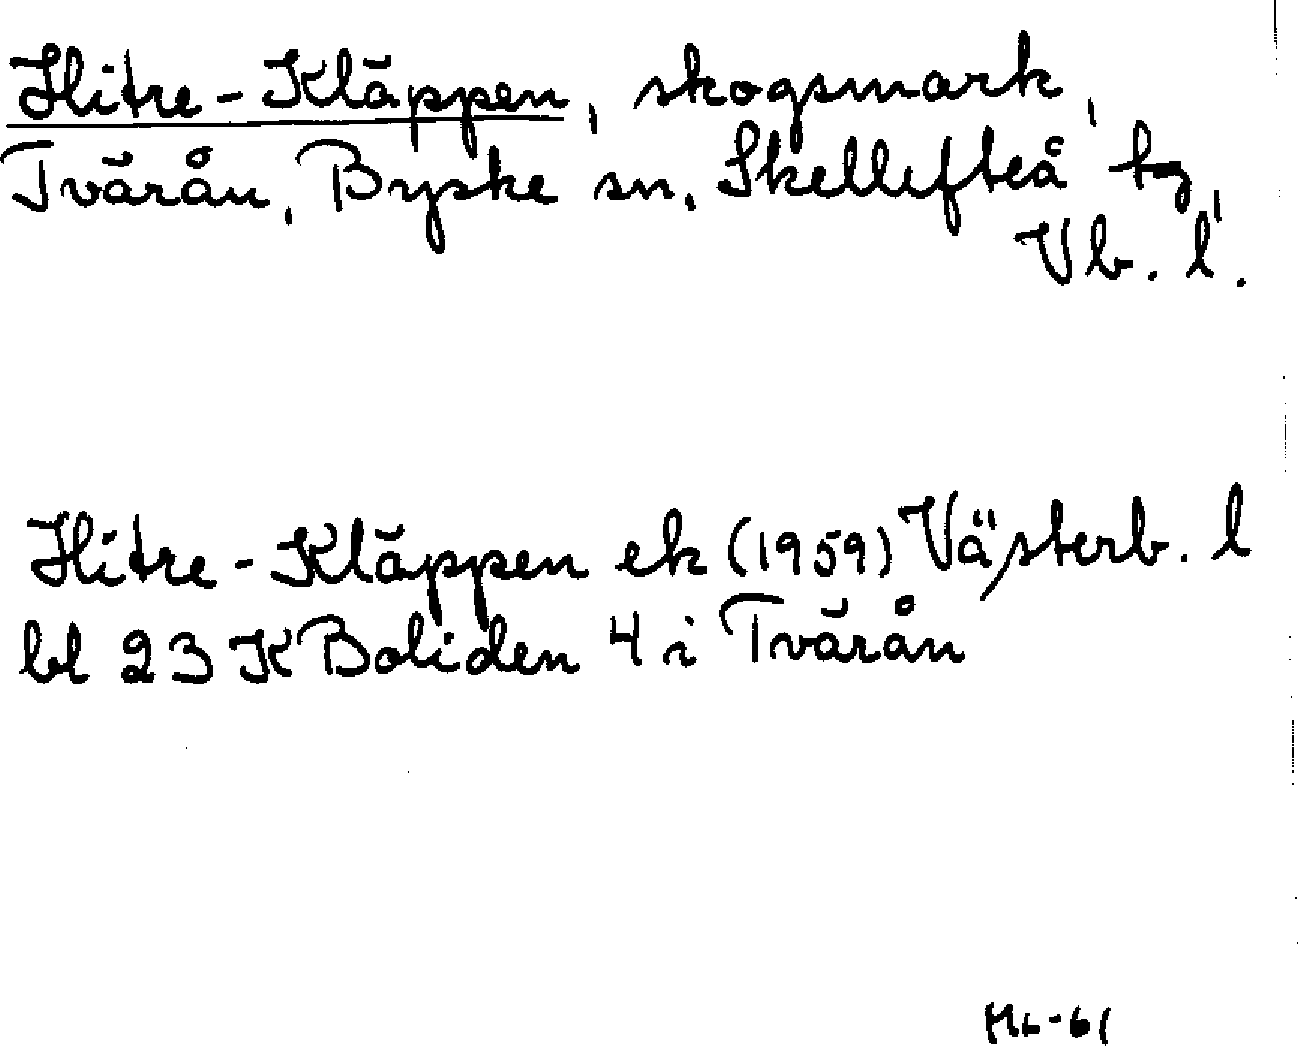 Hitre-Kläppen, skogsmark,
Tvärån, Byske sn, Skellefteå tg,
Vb. l.
Hitre-Kläppen ek (1959) Västerb. l
bl 23 K Boliden 4 i Tvärån